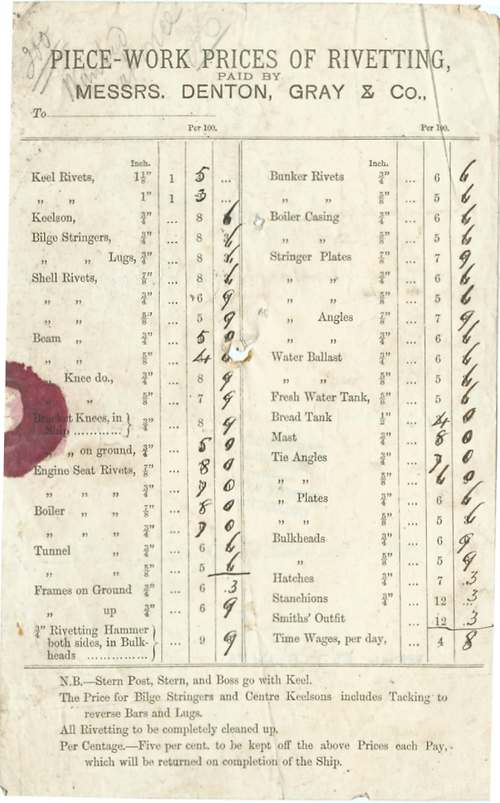 PIECE-WORK PRICES OF RIVETTING,
PAID BY
MESSRS. DENTON, GRAY & Co.,
To
Per 100.
Inch.
Keel Rivets, 1⅛" 1 5 ...
„ „ 1" 1 3 ...
Keelson, ¾" ... 8 6
Bilge Stringers, ¾" ... 8 6
„ „ Lugs, ¾" ... 8 6
Shell Rivets, ⅞" ... 8 6
„ „ ¾" ... 6 9
„ „ ⅝" ... 5 9
Beam „ ¾" ... 5 0
„ „ ⅝" ... 4 6
„ Knee do., ¾" ... 8 9
„ „ ⅝" ... 7 9
Bracket Knees, in
Ship ............ } ¾" ... 8 9
„ on ground, ¾" ... 5 0
Engine Seat Rivets, ⅞" ... 8 0
„ „ „ ¾" ... 7 0
Boiler „ „ ⅞" ... 8 0
„ „ ¾" ... 7 0
Tunnel „ ¾" ... 6 6
„ „ ⅝" ... 5 6
Frames on Ground ¾" ... 6 3
„ up ¾" ... 6 9
¾" Rivetting Hammer
both sides, in Bulk-
heads ............... } ... 9 9
Per 100.
Inch.
Bunker Rivets ¾" ... 6 6
„ „ ⅝" ... 5 6
Boiler Casing ¾" ... 6 6
„ „ ⅝" ... 5 6
Stringer Plates ⅞" ... 7 9
„ „ ¾" ... 6 6
„ „ ⅝" ... 5 6
„ Angles ⅞" ... 7 9
„ „ ¾" ... 6 6
Water Ballast ¾" ... 6 6
„ „ ⅝" ... 5 6
Fresh Water Tank, ⅝" ... 5 6
Bread Tank ½" ... 4 0
Mast ¾" ... 8 0
Tie Angles ¾" ... 7 0
„ „ ⅝" ... 6 0
„ Plates ¾" ... 6 6
„ „ ⅝" ... 5 6
Bulkheads ¾" ... 6 9
„ ⅝" ... 5 9
Hatches ¾" ... 7 3
Stanchions ¾" ... 12 3
Smiths' Outfit ... 12 3
Time Wages, per day, ... 4 8
N.B.—Stern Post, Stern, and Boss go with Keel.
The Price for Bilge Stringers and Centre Keelsons includes Tacking to
reverse Bars and Lugs.
All Rivetting to be completely cleaned up.
Per Centage.—Five per cent. to be kept off the above Prices each Pay,
which will be returned on completion of the Ship.